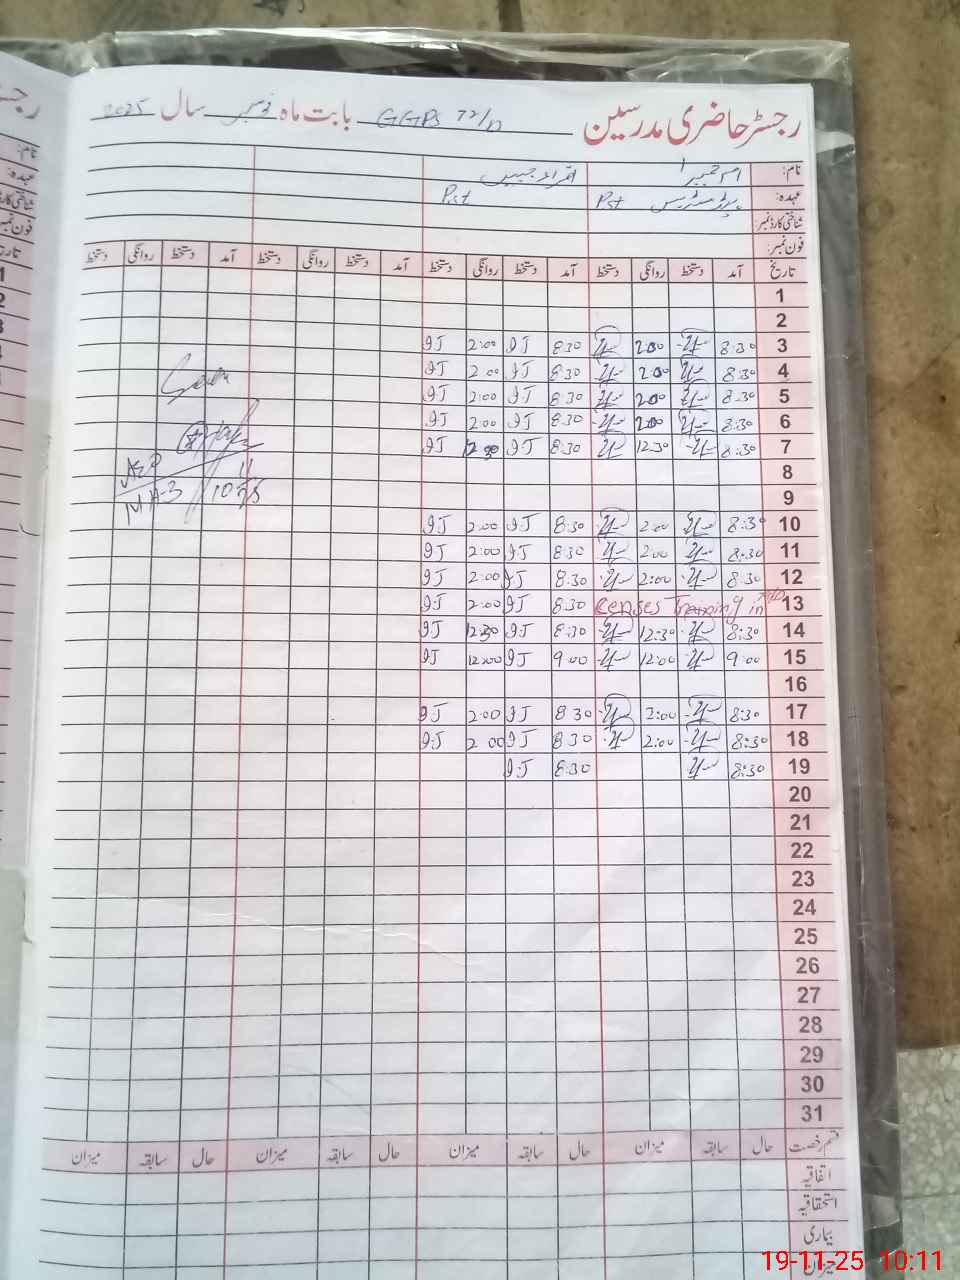 رجسٹر حاضری مدرسین GGPS 72/D بابت ماہ نومبر سال 2025
نام:
عہدہ: ہیڈ مسٹریس Pst Pst
شناختی کارڈ نمبر:
فون نمبر:
تاریخ آمد دستخط روانگی دستخط آمد دستخط روانگی دستخط آمد دستخط روانگی دستخط آمد دستخط روانگی دستخط
1
2
3 8:30 2:00 8:30 I.J 2:00 I.J
4 8:30 2:00 8:30 I.J 2:00 I.J
5 8:30 2:00 8:30 I.J 2:00 I.J
6 8:30 2:00 8:30 I.J 2:00 I.J
7 8:30 12:30 8:30 I.J 12:30 I.J
8
9
10 8:30 2:00 8:30 I.J 2:00 I.J
11 8:30 2:00 8:30 I.J 2:00 I.J
12 8:30 2:00 8:30 I.J 2:00 I.J
13 Censes Training in 8:30 I.J 2:00 I.J
14 8:30 12:30 8:30 I.J 12:30 I.J
15 9:00 12:00 9:00 I.J 12:00 I.J
16
17 8:30 2:00 8:30 I.J 2:00 I.J
18 8:30 2:00 8:30 I.J 2:00 I.J
19 8:30 8:30 I.J
20
21
22
23
24
25
26
27
28
29
30
31
قسم رخصت حال سابقہ میزان حال سابقہ میزان حال سابقہ میزان حال سابقہ میزان
اتفاقیہ
استحقاقیہ
بیماری
میزان
19-11-25 10:11